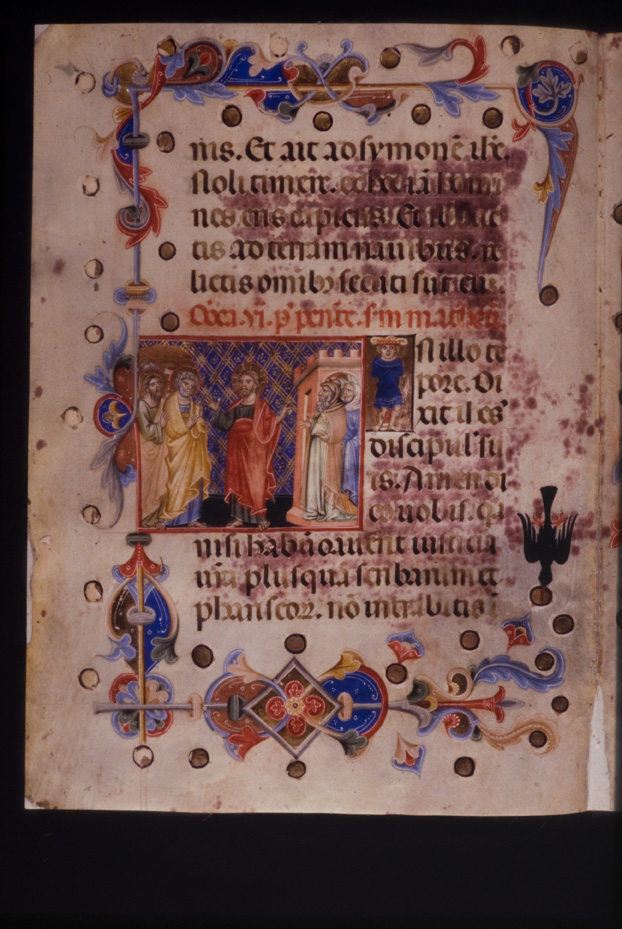 nis. Et ait ad symonē ih̄c.
Noli timere. ex hoc iā homi
nes eris capiens. Et subduc
tis ad terram nauibus. re
lictis omnibꝫ secuti sūt eū.
Do̅ca .vi. p̄ pente. s̄m matheū.
N illo te
pore. Di
xit ih̄c
discipul' su
is. Amen di
co uobis. qa
nisi habūdauerit iusticia
ur̄a plusquā scribarum et
phariseoꝝ. nō intrabitis ī